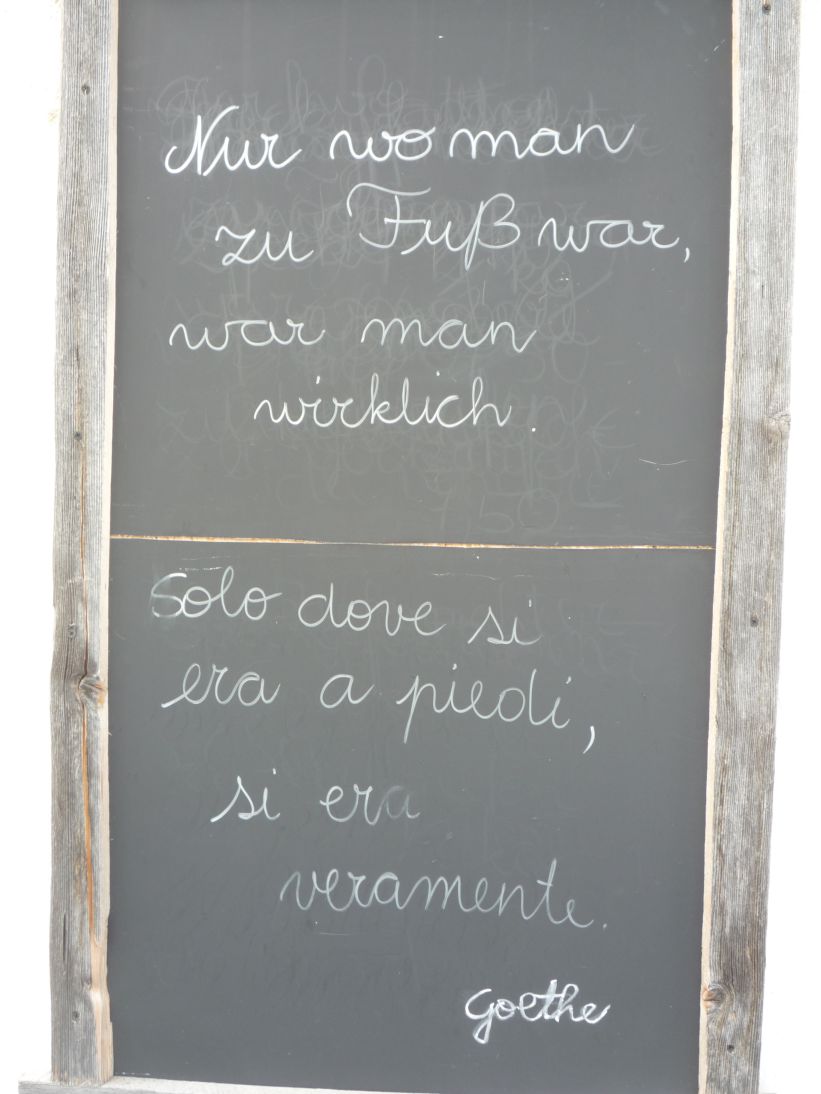 Nur wo man
zu Fuß war,
war man
wirklich.
Solo dove si
era a piedi,
si era
veramente.
Goethe